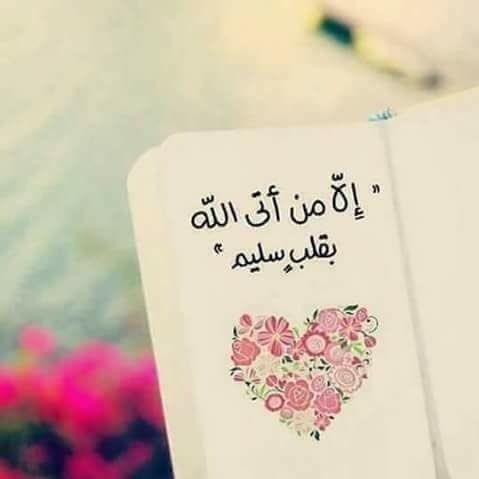 " إِلَّا من أتى اللّه
بقلبٍ سليم "